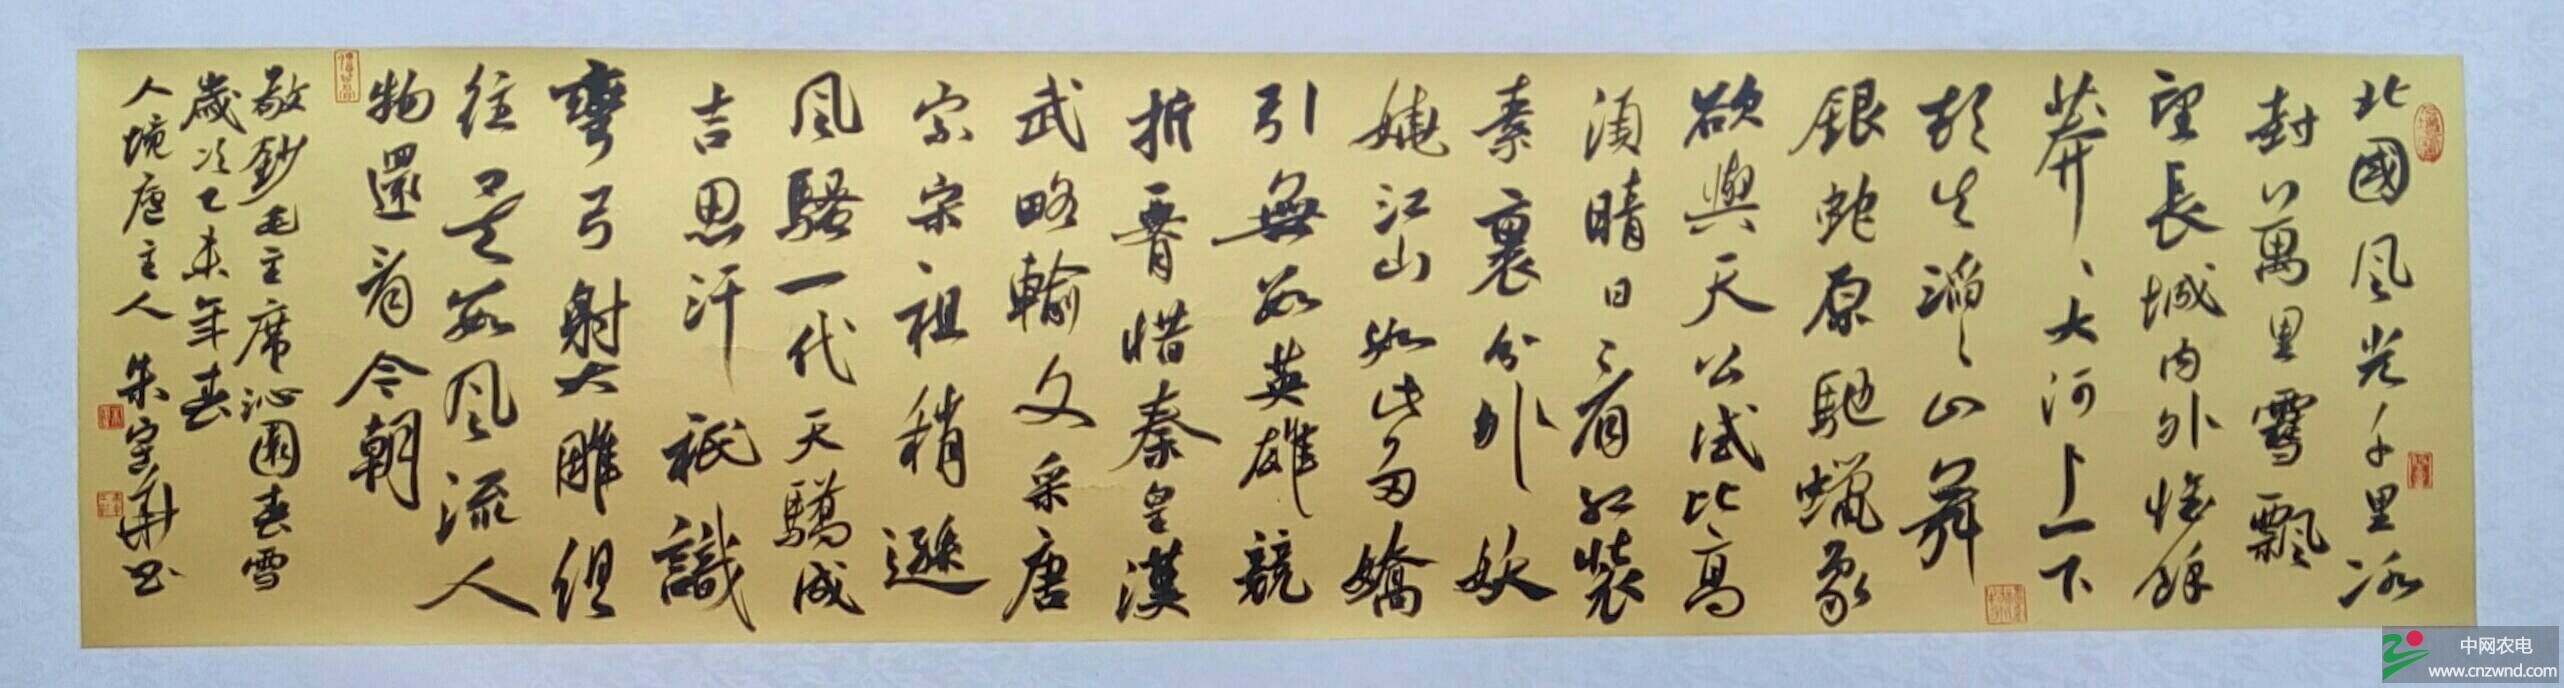 北國風光千里冰
封萬里雪飄
望長城内外惟餘
莽、大河上下
頓失滔〻山舞
銀蛇原馳蠟象
欲與天公試比高
須晴日〻看紅裝
素裹分外妖
嬈江山如此多嬌
引無數英雄競
折腰惜秦皇漢
武略輸文采唐
宗宋祖稍遜
風騷一代天驕成
吉思汗祇識
彎弓射大雕俱
往矣數風流人
物還看今朝
敬鈔毛主席沁園春雪
歲次乙未年春
人境廬主人 朱
中网农电
www.cnzwnd.com